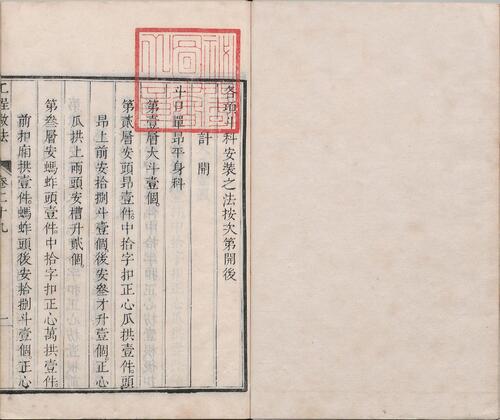 各項斗科安裝之法按次第開後
計開
斗口單昂平身科
第壹層大斗壹個
第貳層安頭昂壹件中拾字扣正心瓜拱壹件頭
昂上前安拾捌斗壹個後安叄才升壹個正心
瓜拱上兩頭安槽升貳個
第叄層安螞蚱頭壹件中拾字扣正心萬拱壹件
前扣廂拱壹件螞蚱頭後安拾捌斗壹個正心
工程做法
卷二十九
一